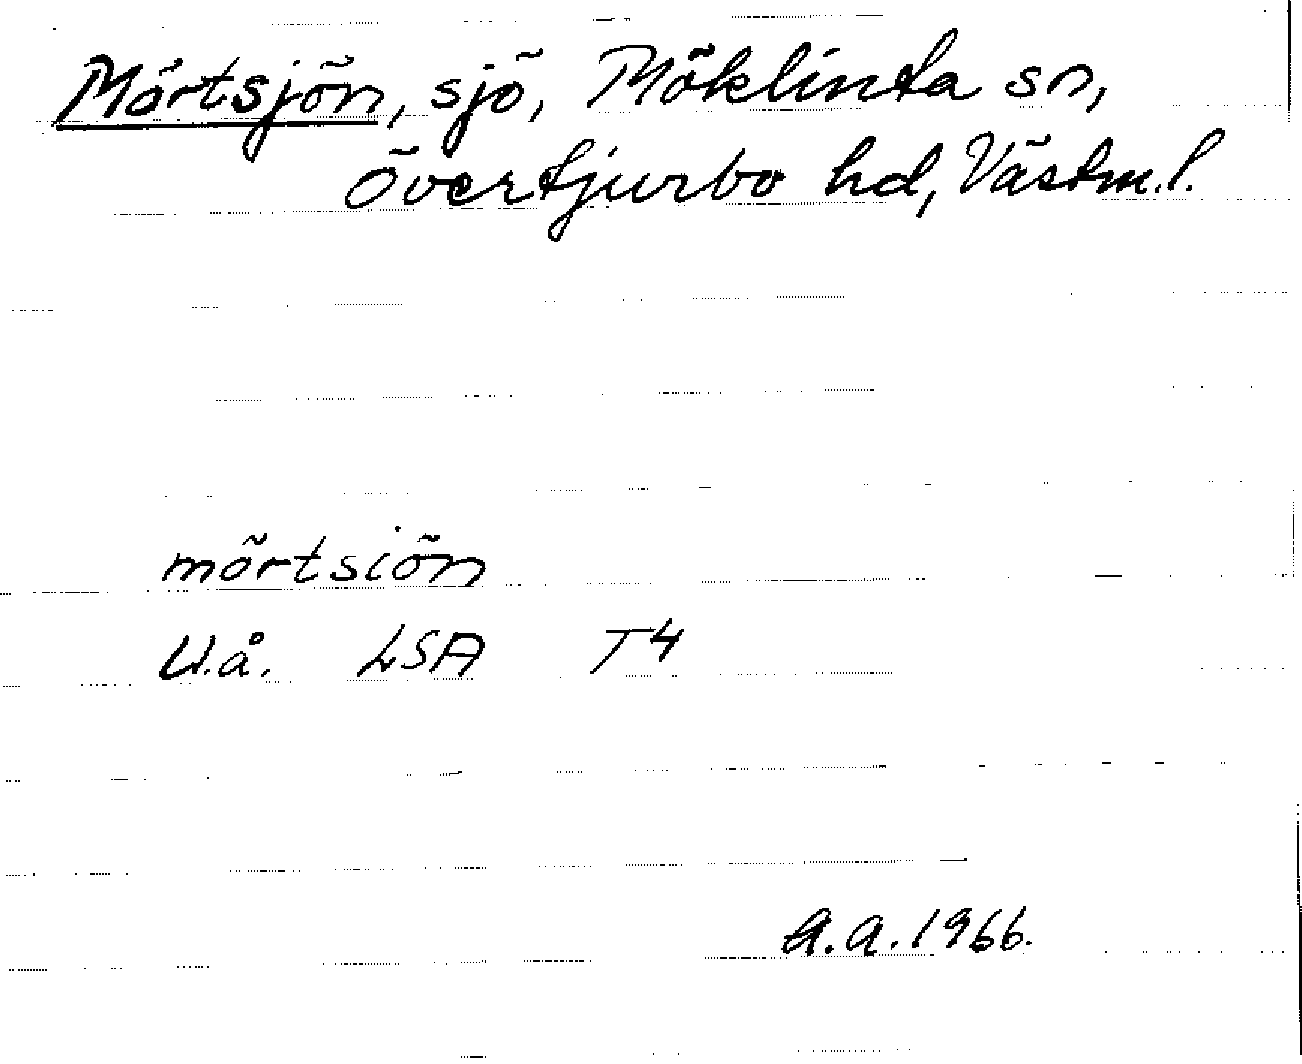 Mörtsjön, sjö, Möklinta sn,
Övertjurbo hd, Västm.l.
mörtsiön
U.å. LSA T4
A.A.1966.